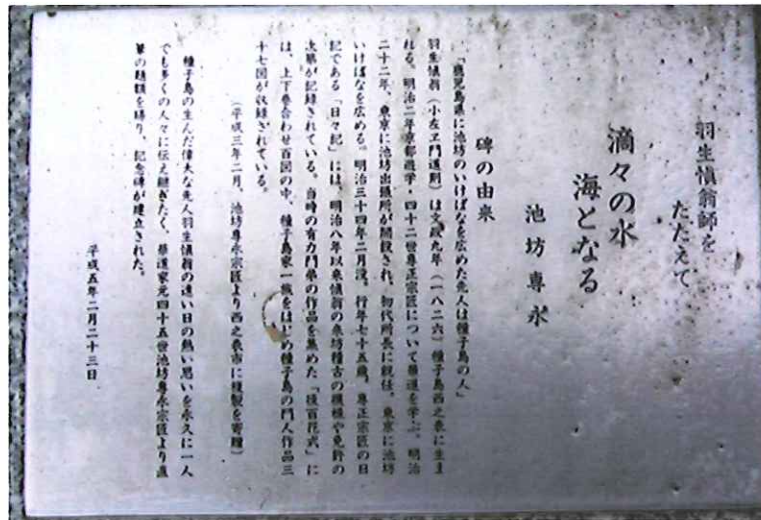 羽生慎翁師を
たたえて
滴々の水
海となる
池坊專永
碑の由来
「鹿児島県に池坊のいけばなを広めた先人は種子島の人」
羽生慎翁(小左ヱ門道則)は文政九年(一八二六)種子島西之表に生ま
れる。明治二年京都遊学・四十二世專正宗匠について華道を学ぶ。明治
二十二年、東京に池坊出張所が開設され、初代所長に就任。東京に池坊
いけばなを広める。明治三十四年二月没。行年七十五歳。專正宗匠の日
記である「日々記」には、明治八年以来慎翁の来坊稽古の模様や免許の
次第が記録されている。当時の有力門弟の作品を集めた「後百花式」に
は、上下巻合わせ百図の中、種子島家一族をはじめ種子島の門人作品三
十七図が収録されている。
(平成三年二月、池坊專永宗匠より西之表市に複製を寄贈)
種子島の生んだ偉大な先人羽生慎翁の遠い日の熱い思いを永久に一人
でも多くの人々に伝え継ぎたく、華道家元四十五世池坊專永宗匠より直
筆の題額を賜り、記念碑が建立された。
平成五年二月二十三日